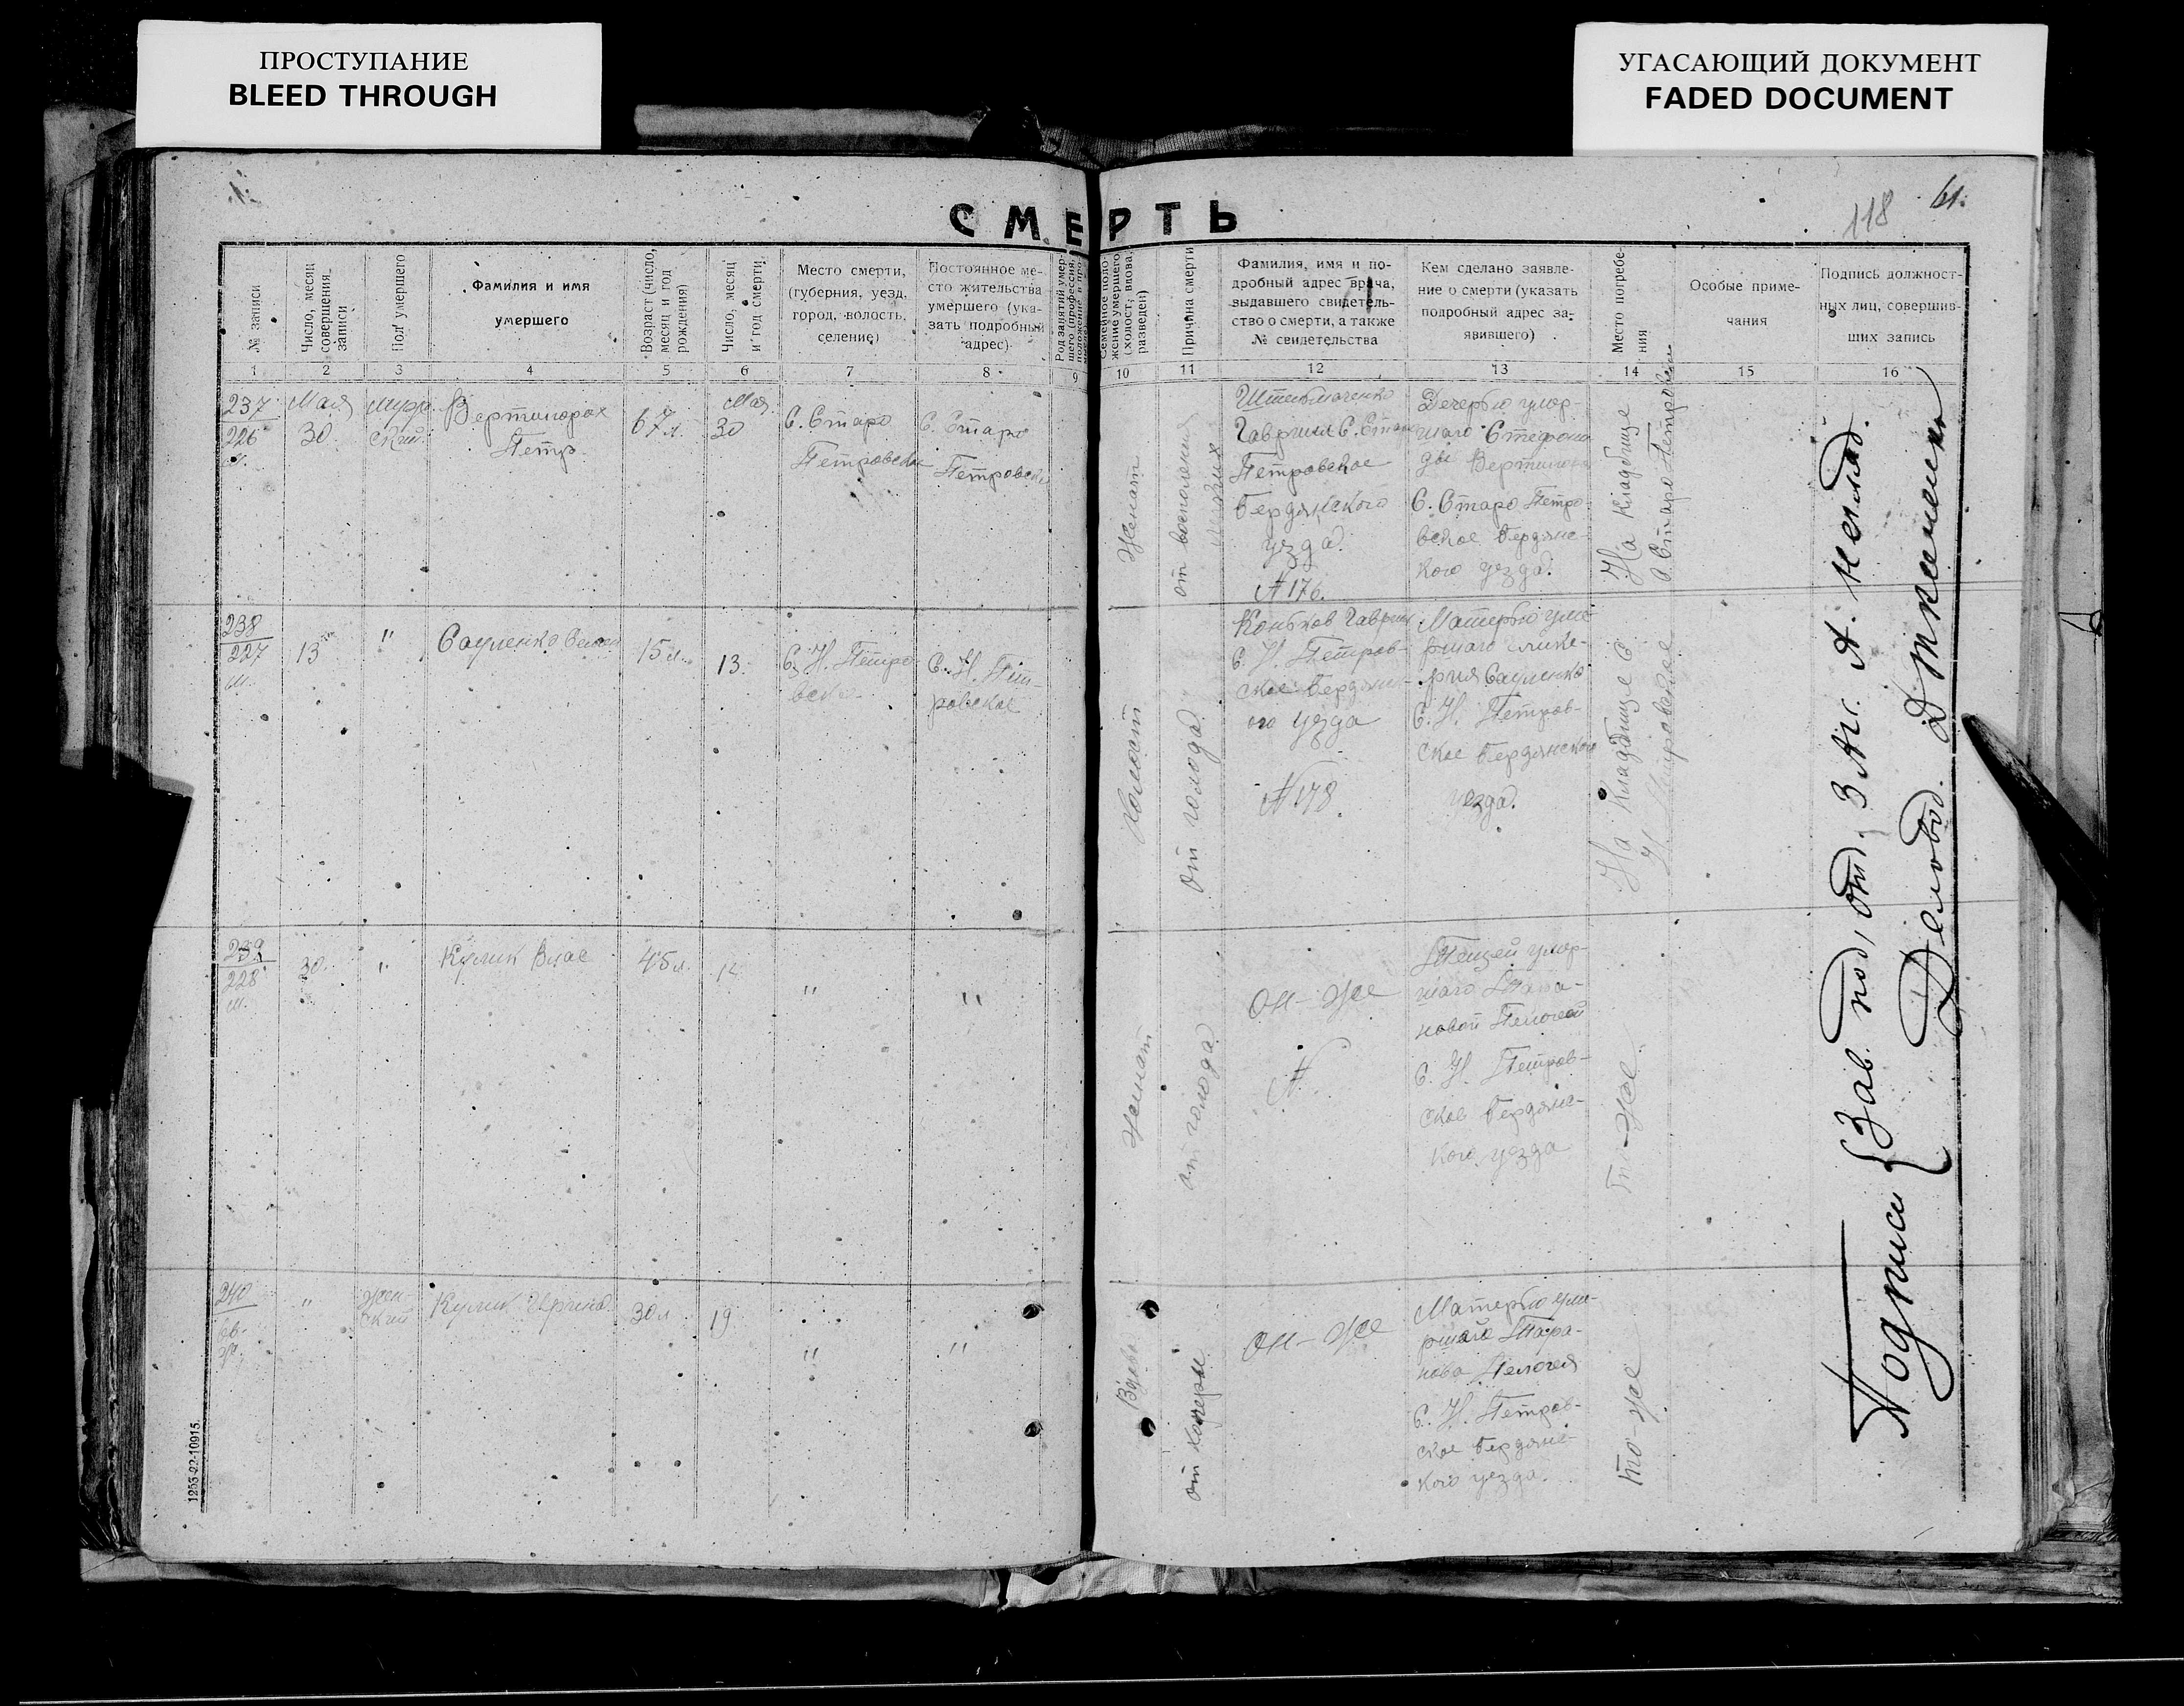 ПРОСТУПАНИЕ
BLEED THROUGH
УГАСАЮЩИЙ ДОКУМЕНТ
FADED DOCUMENT
118
61.
СМЕРТЬ
№ записи
Число, месяц
совершения
записи
Пол умершего
Фамилия и имя
умершего
Возраст (число,
месяц и год
рождения)
Число, месяц
и год смерти
Место смерти,
(губерния, уезд,
город, волость,
селение)
Постоянное ме-
сто жительства
умершего (ука-
зать подробный
адрес)
Род занятий умер-
шего (профессия,
Семейное поло-
жение умершего
(холост, вдова,
разведен)
Причина смерти
Фамилия, имя и по-
дробный адрес врача,
выдавшего свидетель-
ство о смерти, а также
№ свидетельства
Кем сделано заявле-
ние о смерти (указать
подробный адрес за-
явившего)
Место погребе-
ния
Особые приме-
чания
Подпись должност-
ных лиц, совершив-
ших запись
1 2 3 4 5 6 7 8 9 10 11 12 13 14 15 16
237
226
м.
Мая
30
Муж
ский
Вертипорох
Петр
67 л.
Мая
30
С. Старо
Петровское
С. Старо
Петровск
Женат
от воспаления
легких
Гавриил С. Старо
Петровское
Бердянского
уезда.
№ 176.
Дочерью умер-
шаго Стефони
дой
С. Старо Петро-
вское Бердянс-
кого уезда.
На кладбище
с Старо Петровском
238
227
м.
13
"
Сауленко Семен
15 л.
13
С. Н. Петро
вско
С. Н. Пет-
ровское
Холост
от голода
Коньков Гаврил
С. Н. Петров-
ское Бердянс-
ого уезда
№ 178.
Матерью уме
ршаго
Сауленко
С. Н. Петров-
ское Бердянского
уезда.
На кладбище с
Н. Петровское
239
228
м.
30
"
Кулик Влас
45 л.
"
"
Женат
от голода
Он-же
№
Тещей умер-
шаго Тара-
новой Пелогей
С. Н. Петров-
ское Бердянс-
кого уезда
То-же
240
"
жен
ский
Кулик Ирина
30 л
19
"
"
Вдова
от холеры
Он-же
Матерью уме-
ршаго Тара-
нова Пелогея
С. Н. Петров-
ское Бердянс-
кого уезда.
то-же
Подписи { Зав. под, отд. З Агс. А.
Деловод.
1255-22-10915.